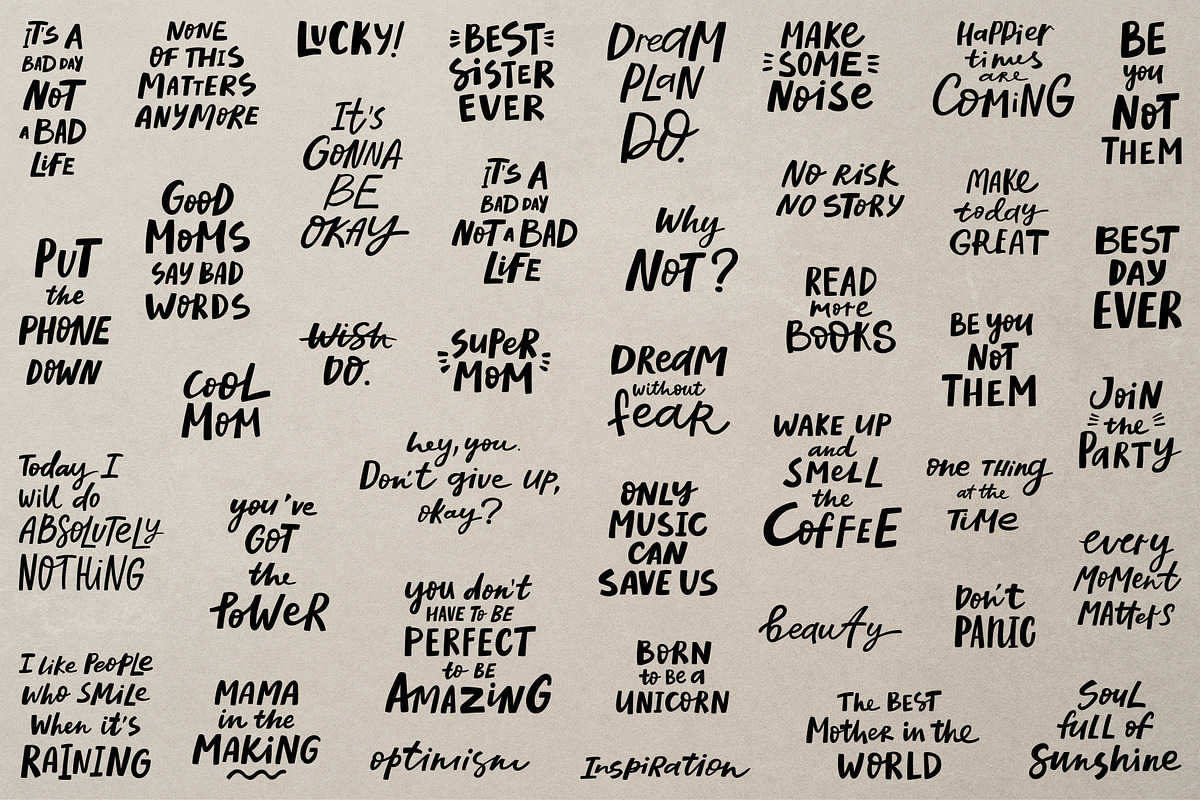 IT'S A
BAD DAY
NOT
A BAD
LIFE
PUT
the
PHONE
DOWN
Today I
will do
ABSOLUTELY
NOTHING
I like PEOPLE
who SMILE
When it's
RAINING
NONE
OF THIS
MATTERS
ANYMORE
GOOD
MOMS
SAY BAD
WORDS
COOL
MOM
you've
GOT
the
POWER
MAMA
in the
MAKING
LUCKY!
It's
GONNA
BE
OKAY
WISH
DO.
hey, you.
Don't give UP,
okay?
you don't
HAVE TO BE
PERFECT
to BE
AMAZING
optimism
BEST
SISTER
EVER
IT'S A
BAD DAY
NOT A BAD
LIFE
SUPER
MOM
DREAM
PLAN
DO.
Why
NOT?
DREAM
without
fear
ONLY
MUSIC
CAN
SAVE US
BORN
to BE a
UNICORN
INSPIRATION
MAKE
SOME
NOISE
NO RISK
NO STORY
READ
more
BOOKS
WAKE UP
and
SMELL
the
COFFEE
beauty
The BEST
Mother in the
WORLD
Happier
times
are
COMING
MAKE
today
GREAT
BE you
NOT
THEM
one THING
at the
TIME
Don't
PANIC
BE
you
NOT
THEM
BEST
DAY
EVER
JOIN
the
PARTY
every
MOMENT
MATTERS
SOUL
full of
Sunshine